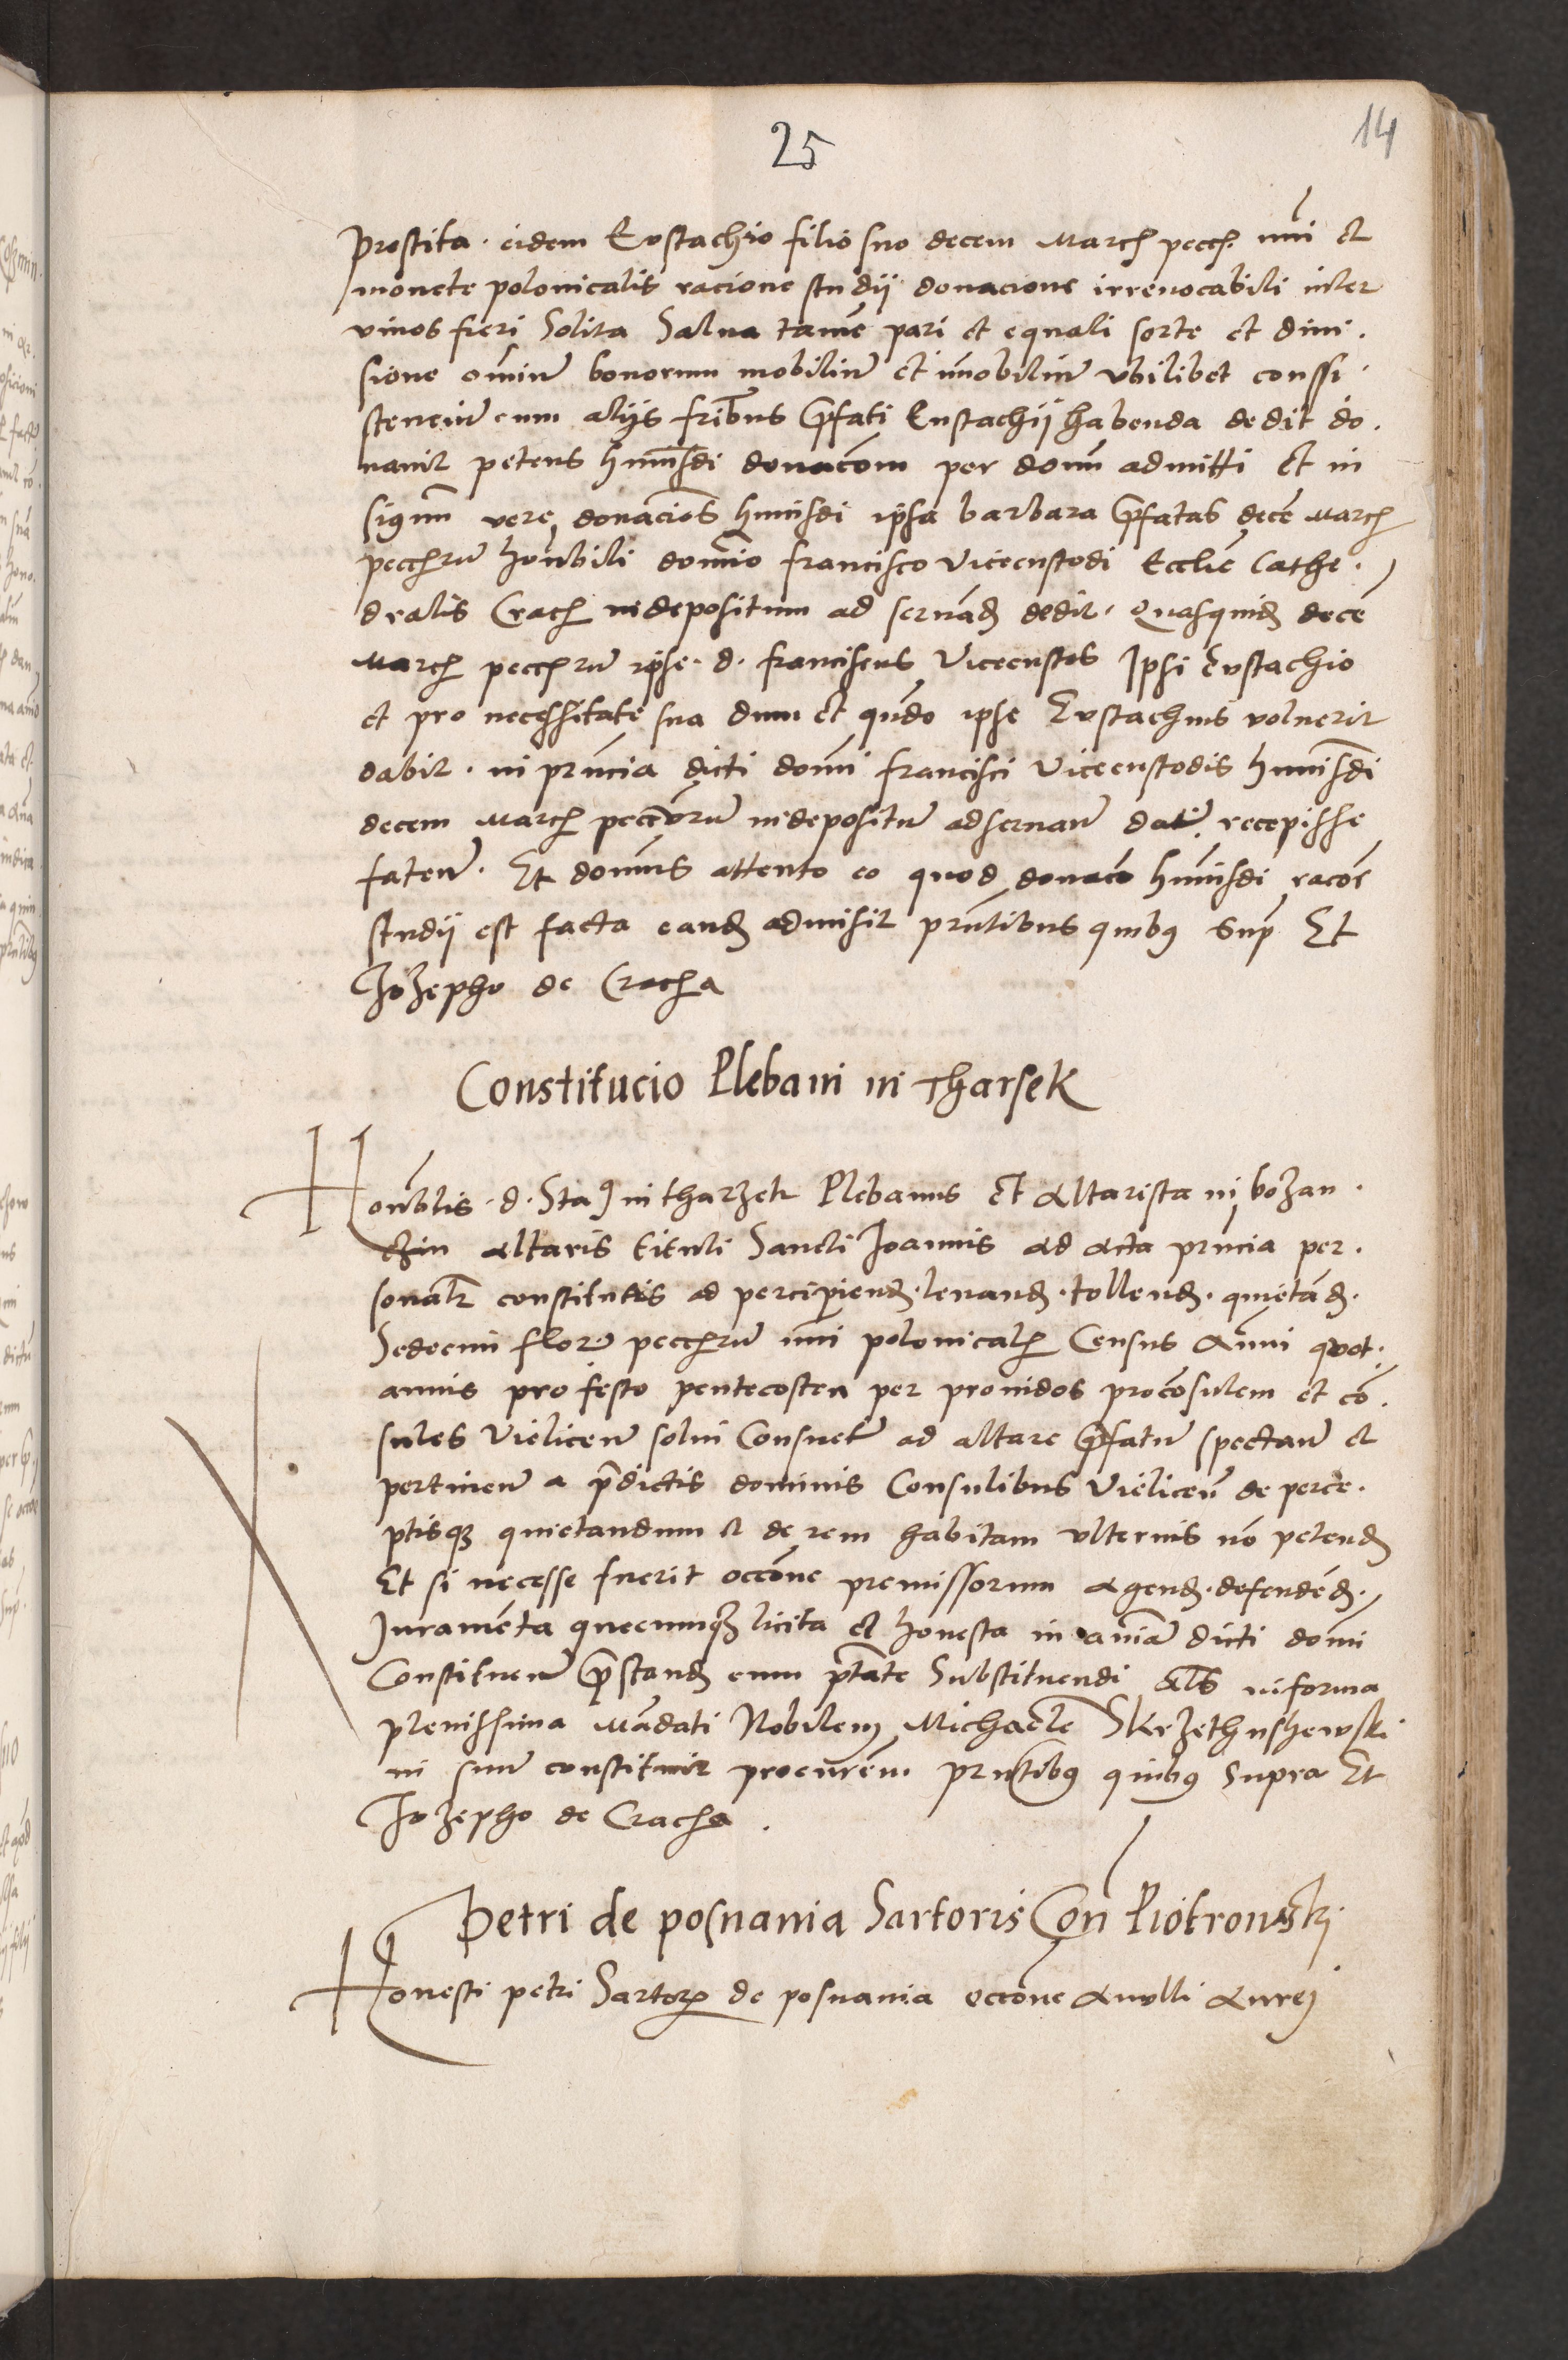 25
14
prostita . eidem Eustachio filio suo decem March pecch. nũi et
monete polonicalis racione studii donacione irrevocabili inter
vivos fieri Solita Salva tamẽ pari et equali sorte et divi .
sione omniũ bonorum mobiliũ et immobiliũ ubilibet consi
stenciũ cum aliis fribus prefati Eustachii habenda dedit do .
navit petens huiusdi donacõem per domũ admitti Et in
signũ vere donaciõs huiusdi ipsa barbara prefatas decẽ march
pecchrũ honorabili domino francisco Vicecustodi Ecclie Cathe .
dralis Crach in depositum ad servãd dedit . Quasquid decẽ
March pecchrũ ipse . d . franciscus Vicecustos Ipsi Eustachio
et pro necessitate sua dum et qñdo ipse Eustachius voluerit
dabit . in prñcia dicti domi francisci Vicecustodis huiusdi
decem March peccũrũ in depositũ ad servanũ datũ recepisse
fatenũ . Et dominus attento eo quod donacõ huiusdi racõe
studii est facta eand admisit prñtibus quibus Sup Et
Jozepho de Cracha
Constitucio Plebani in Tharsek
Honorablis . d . Sta9 in tharzek Plebanus Et Altarista in bozan .
czin altaris tituli Sancti Joannis ad acta prñcia per .
sonalr constitutis ad percipiend . levand . tollend . quietãd .
Sedecim flor pecchrũ nũi polonicalis Census Anni quot .
annis pro festo pentecosten per providos procõsulem et cõ .
sules Vielicenũ solvi Consuetũ ad altare prefatũ spectanũ et
pertinenũ a predictis dominis Consulibus Vielicenũ de perce .
ptisque quietandum et de rem habitam ulterius nõ petend
Et si necesse fuerit occõne premissorum agend . defendẽd .
Juramẽta quecumque licita et honesta in animã dicti domi
Constituenũ prestand cum ptãte Substituendi als in forma
plenissima Mãdati Nobilem Michaelẽ Skrzethushewski
in suũ constituit procurẽm . prñtibus quibus Supra Et
Jozepho de Cracha .
Petri de posnania Sartoris Con Piotrowski
Honesti petri Sartoris de posnania occõne Anulli Aurei